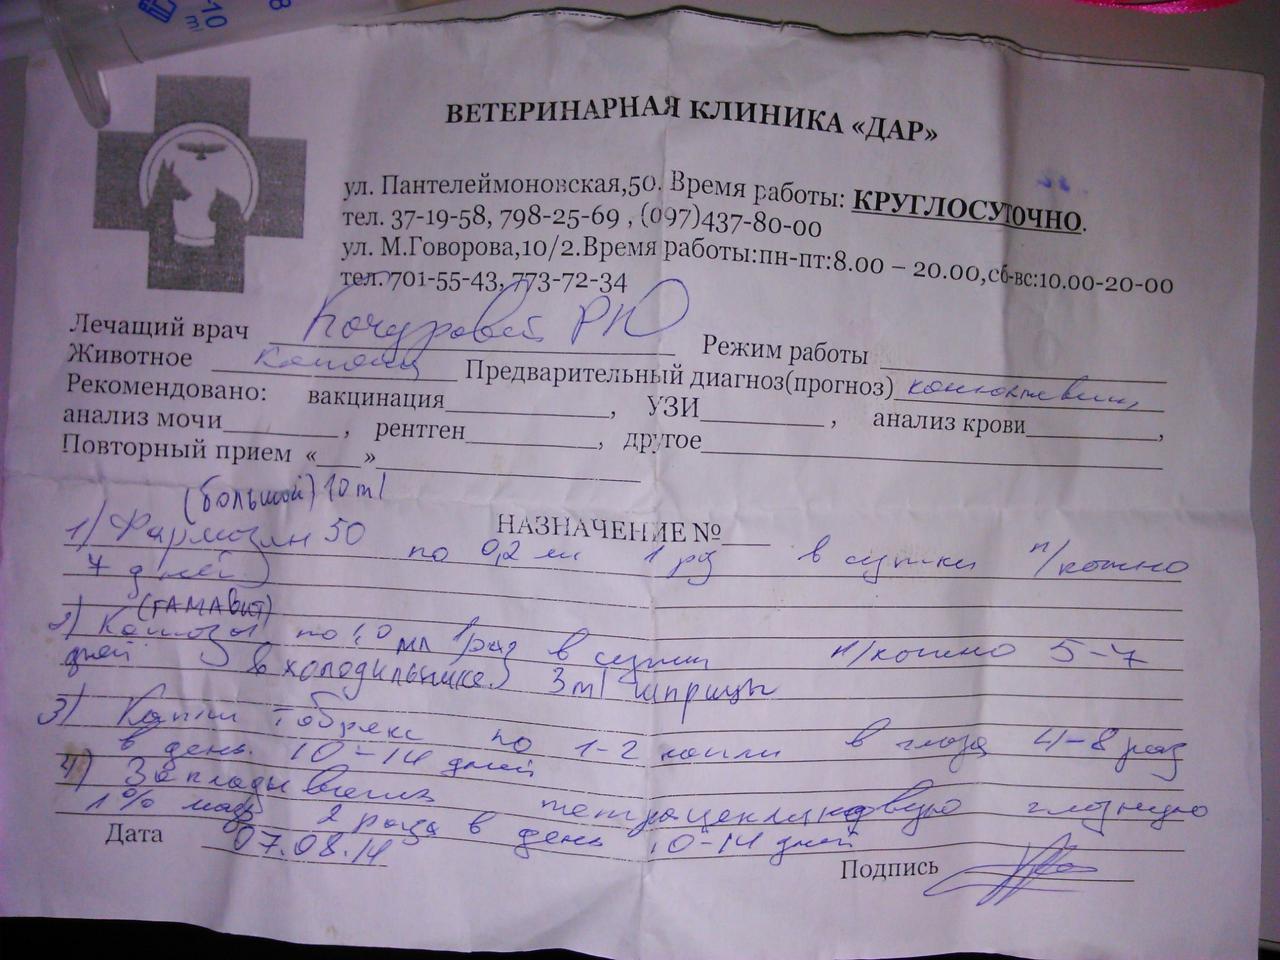 8
10
ml
ВЕТЕРИНАРНАЯ КЛИНИКА «ДАР»
ул. Пантелеймоновская,50. Время работы: КРУГЛОСУТОЧНО.
тел. 37-19-58, 798-25-69 , (097)437-80-00
ул. М.Говорова,10/2.Время работы:пн-пт:8.00 – 20.00,сб-вс:10.00-20-00
тел.701-55-43, 773-72-34
Лечащий врач Режим работы
Животное Предварительный диагноз(прогноз)
Рекомендовано: вакцинация , УЗИ , анализ крови ,
анализ мочи , рентген , другое
Повторный прием « »
(большой) 10 ml
НАЗНАЧЕНИЕ №
1) 50 по 0,2 мл 1 раз в сутки п/кожно
7 дней
(ГАМАВит)
2) по 1,0 мл 1 раз в сутки п/кожно 5-7
дней в холодильнике 3ml шприцы
3) Капли Тобрекс по 1-2 капли в глаза 4-8 раз
в день. 10-14 дней
4) Закладывать тетрациклиновую глазную
1% мазь 2 раза в день 10-14 дней
Дата 07.08.14
Подпись